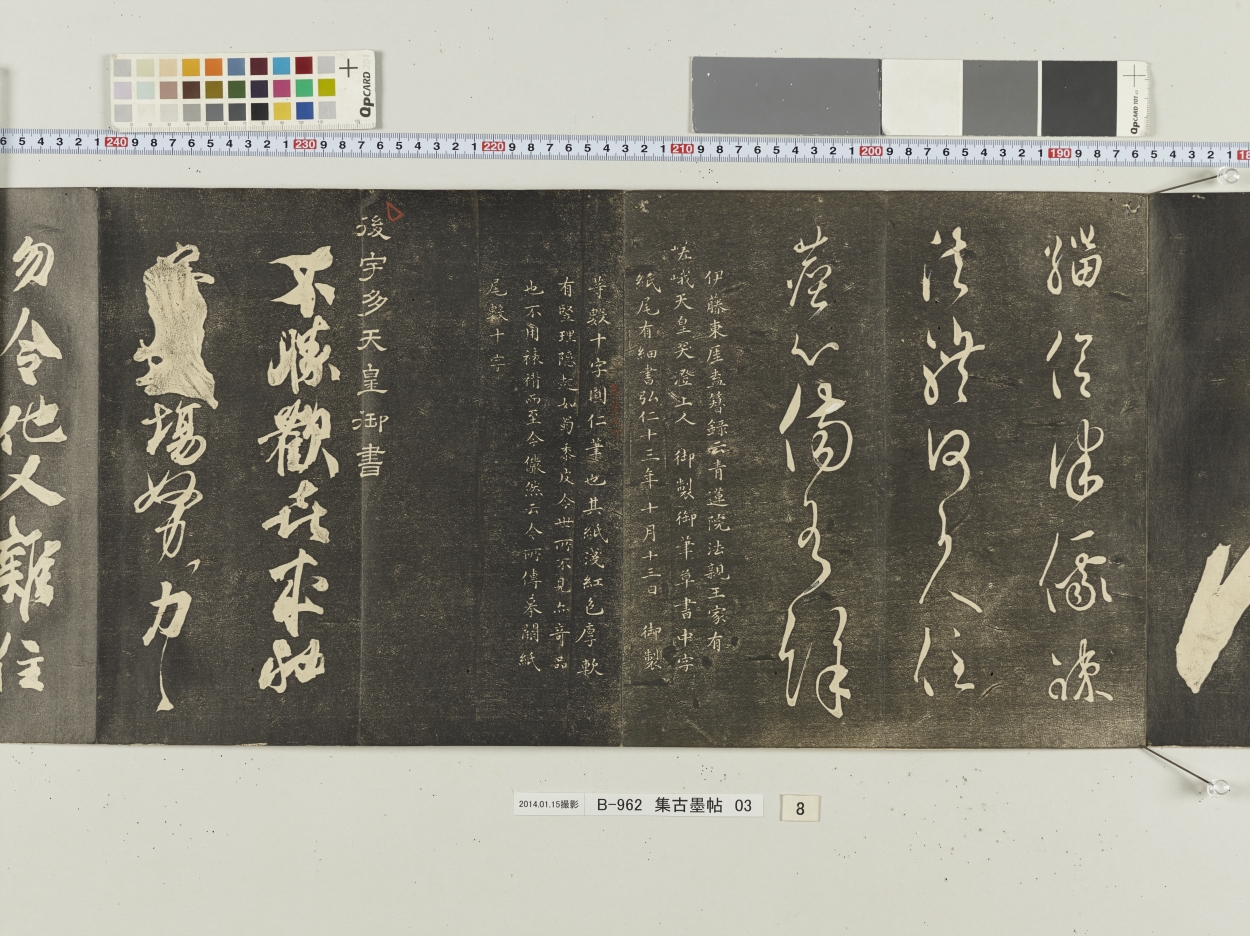 緇侶律儀疎
法體何人住
塵心傷有餘
伊藤東厓盍簪録云青蓮院法親王家有
嵯峨天皇哭澄上人 御製御筆草書中字
紙尾有細書弘仁十三年十月十三日 御製
等數十字圓仁筆也其紙浅紅色厚軟
有堅理隠起如蜀黍皮今世所不見亦奇品
也不用裱褙而至今儼然云今所傳摹闕紙
尾數十字
後宇多天皇御書
不勝歡喜求肋
場努力
勿令他人難住
QpCARD
QpCARD 101
2014.01.15撮影
B-962 集古墨帖 03
8